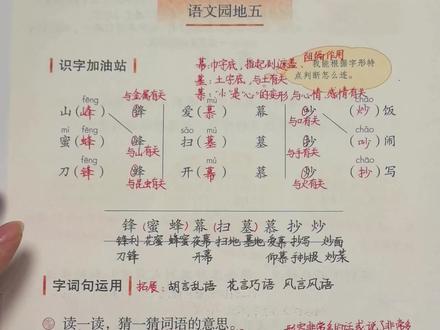 语文园地五
阻断作用
识字加油站
幕:巾字底,推起到遮盖、
我能根据字形特
墓:土字底,与土有关
点判断怎么连。
慕:“⺗”是“心”的变形 与心情、感情有关
与金属有关
fēng mù chǎo
山(峰) 锋 爱(慕) 幕 吵 (炒)饭
与口有关
mì mù chǎo
蜜(蜂) 峰 扫(墓) 慕 抄 (吵)闹
与山有关 与手有关
fēng mù chāo
刀(锋) 蜂 开(幕) 墓 炒 (抄)写
与昆虫有关 与火有关
锋(蜜 蜂)幕(扫 墓)慕 抄 炒
锋利 花蜜 蜂蜜 夜幕 扫地 墓地 爱慕 抄写 炒面
刀锋 开幕 仰慕 炒菜
字词句运用
拓展: 胡言乱语 花言巧语 风言风语
读一读,猜一猜词语的意思